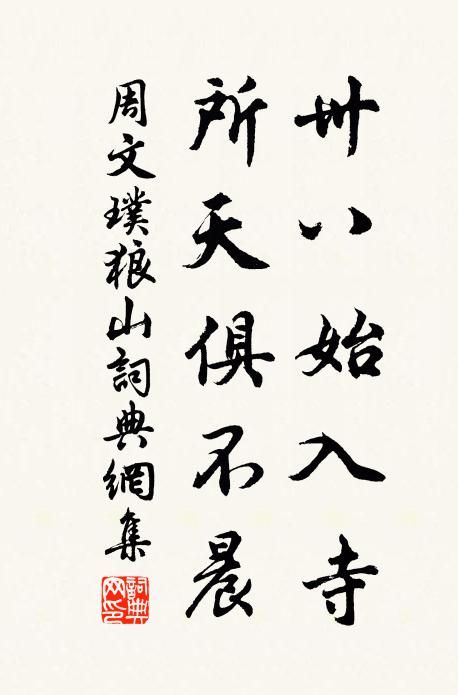 卅八始入寺
所天俱不晨
周文璞狼山詞典網集
詞典網印